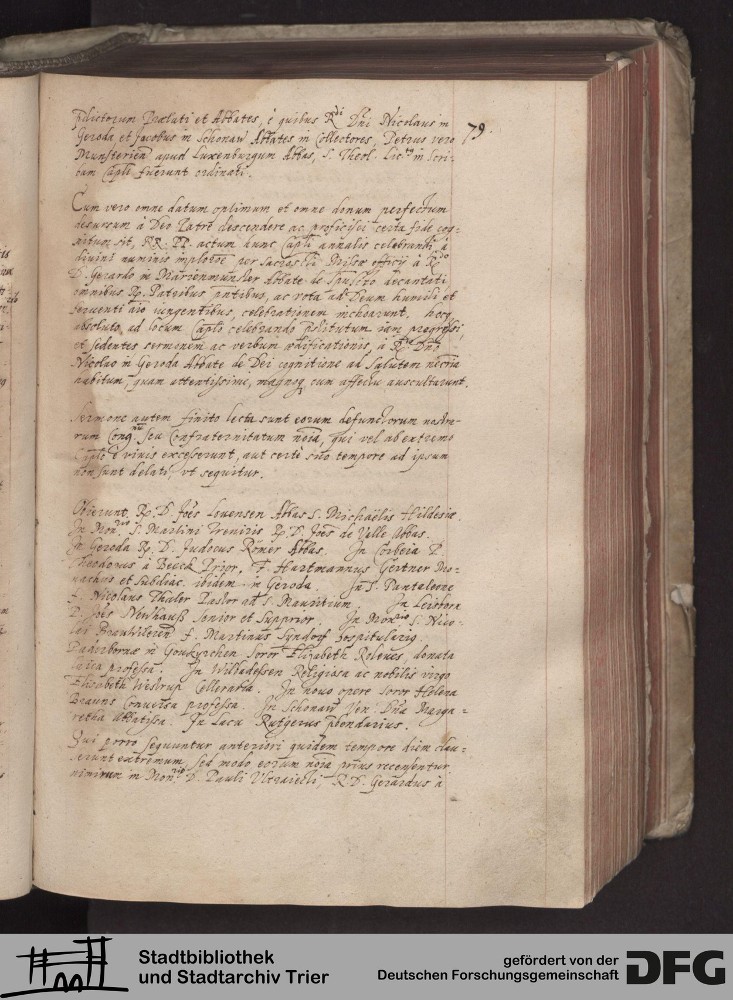 79.
Praelati et Abbates, è quibus Rdi Dni Nicolaus in
Geroda et Jacobus in Schonaw Abbates in Collectores, Petrus vero
Munsterien apud Luxenburgum Abbas, S. Theol. Lic. in Scri-
bam Capli fuerunt ordinati.
Cum vero omne datum optimum et omne donum perfectum
desursum à Deo Patre descendere ac proficisci certa fide cog-
nitum sit, RR. PP. actum hunc Capli annalis celebrandi à
divini numinis per sacrosti Missae officiũ à Rdo
D. Gerardo in Marienmunster Abbate de Spũ Scto decantati
omnibus Rp. Patribus pntibus, ac vota ad Deum humili et
ferventi aio iungentibus, celebrationem inchoarunt. hocq
absoluto, ad locum Caplo celebrando iam progressi,
et sedentes sermonem ac verbum aedificationis, à Rdo Dno
Nicolao in Geroda Abbate de Dei cognitione ad salutem necria
habitum, quam attentissime, magnoq cum affectu auscultarunt.
Sermone autem finito lecta sunt eorum defunctorum nostro-
rum Cong. seu Confraternitatum noia, qui vel ab extremo
Caplo è vivis excesserunt, aut certe suo tempore ad ipsum
non sunt delati, ut sequitur.
Obierunt Rp. D. Joes Lowensen Abbas S. Michaëlis Hildesiae.
In Monrio S. Martini Treviris Rp. D. Joes de Valle Abbas.
In Geroda Rp. D. Judocus Römer Abbas. In Corbeia P.
Theodorus à Beeck Prior, F. Hartmannus Gertner Mo-
nachus et Subdiac. ibidem in Geroda. In S. Pantaleone
F. Nicolaus Thaler Pastor ad S. Mauritium. In Leisborn
P. Joes Newhauß Senior et Supprior. In Monrio S. Nico-
lai Brauwileren F. Martinus Syndorf hospitularig.
Paderbornae in Goukirchen Soror Elizabeth Roleves, donata
laica professa. In Wilbadessen Religiosa ac nobilis virgo
Elizabeth Westrup Celleraria. In novo opere Soror Helena
Brauns Conversa professa. In Schonaw Ven. Dna Marga-
retha Abbatissa. In Lacu Rutgerus pbendarius.
Qui porro sequuntur anteriori quidem tempore diem clau-
serunt extremum, sed modo eorum noia prius recensentur
nimirum in Monrio D. Pauli Ultraiecti, R. D. Gerardus à
Stadtbibliothek
und Stadtarchiv Trier
gefördert von der
Deutschen Forschungsgemeinschaft
DFG